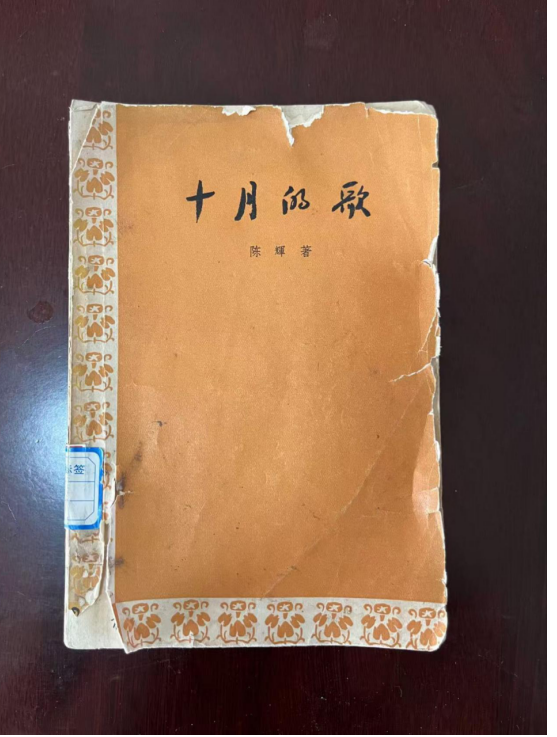 十月的歌
陈輝著
签